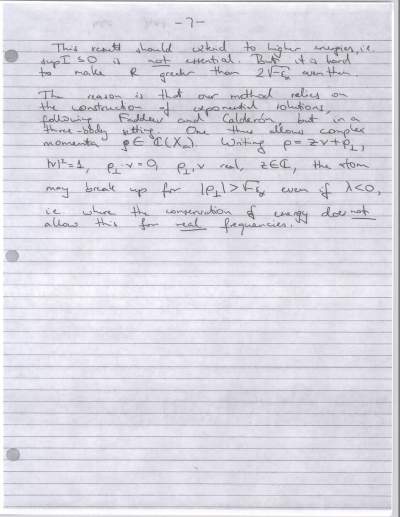 -7-
This result should extend to higher energies, i.e.
sup I ≤ 0 is not essential. But it is hard
to make R greater than 2√-ε_α even then.
The reason is that our method relies on
the construction of exponential solutions,
following Faddeev and Calderón, but in a
three-body setting. One thus allows complex
momenta ρ ∈ ℂ(X_a). Writing ρ = zν + ρ_⊥,
|ν|²=1, ρ_⊥·ν = 0, ρ_⊥, ν real, z∈ℂ, the atom
may break up for |ρ_⊥| > √-ε_α even if λ<0,
ie where the conservation of energy does not
allow this for real frequencies.